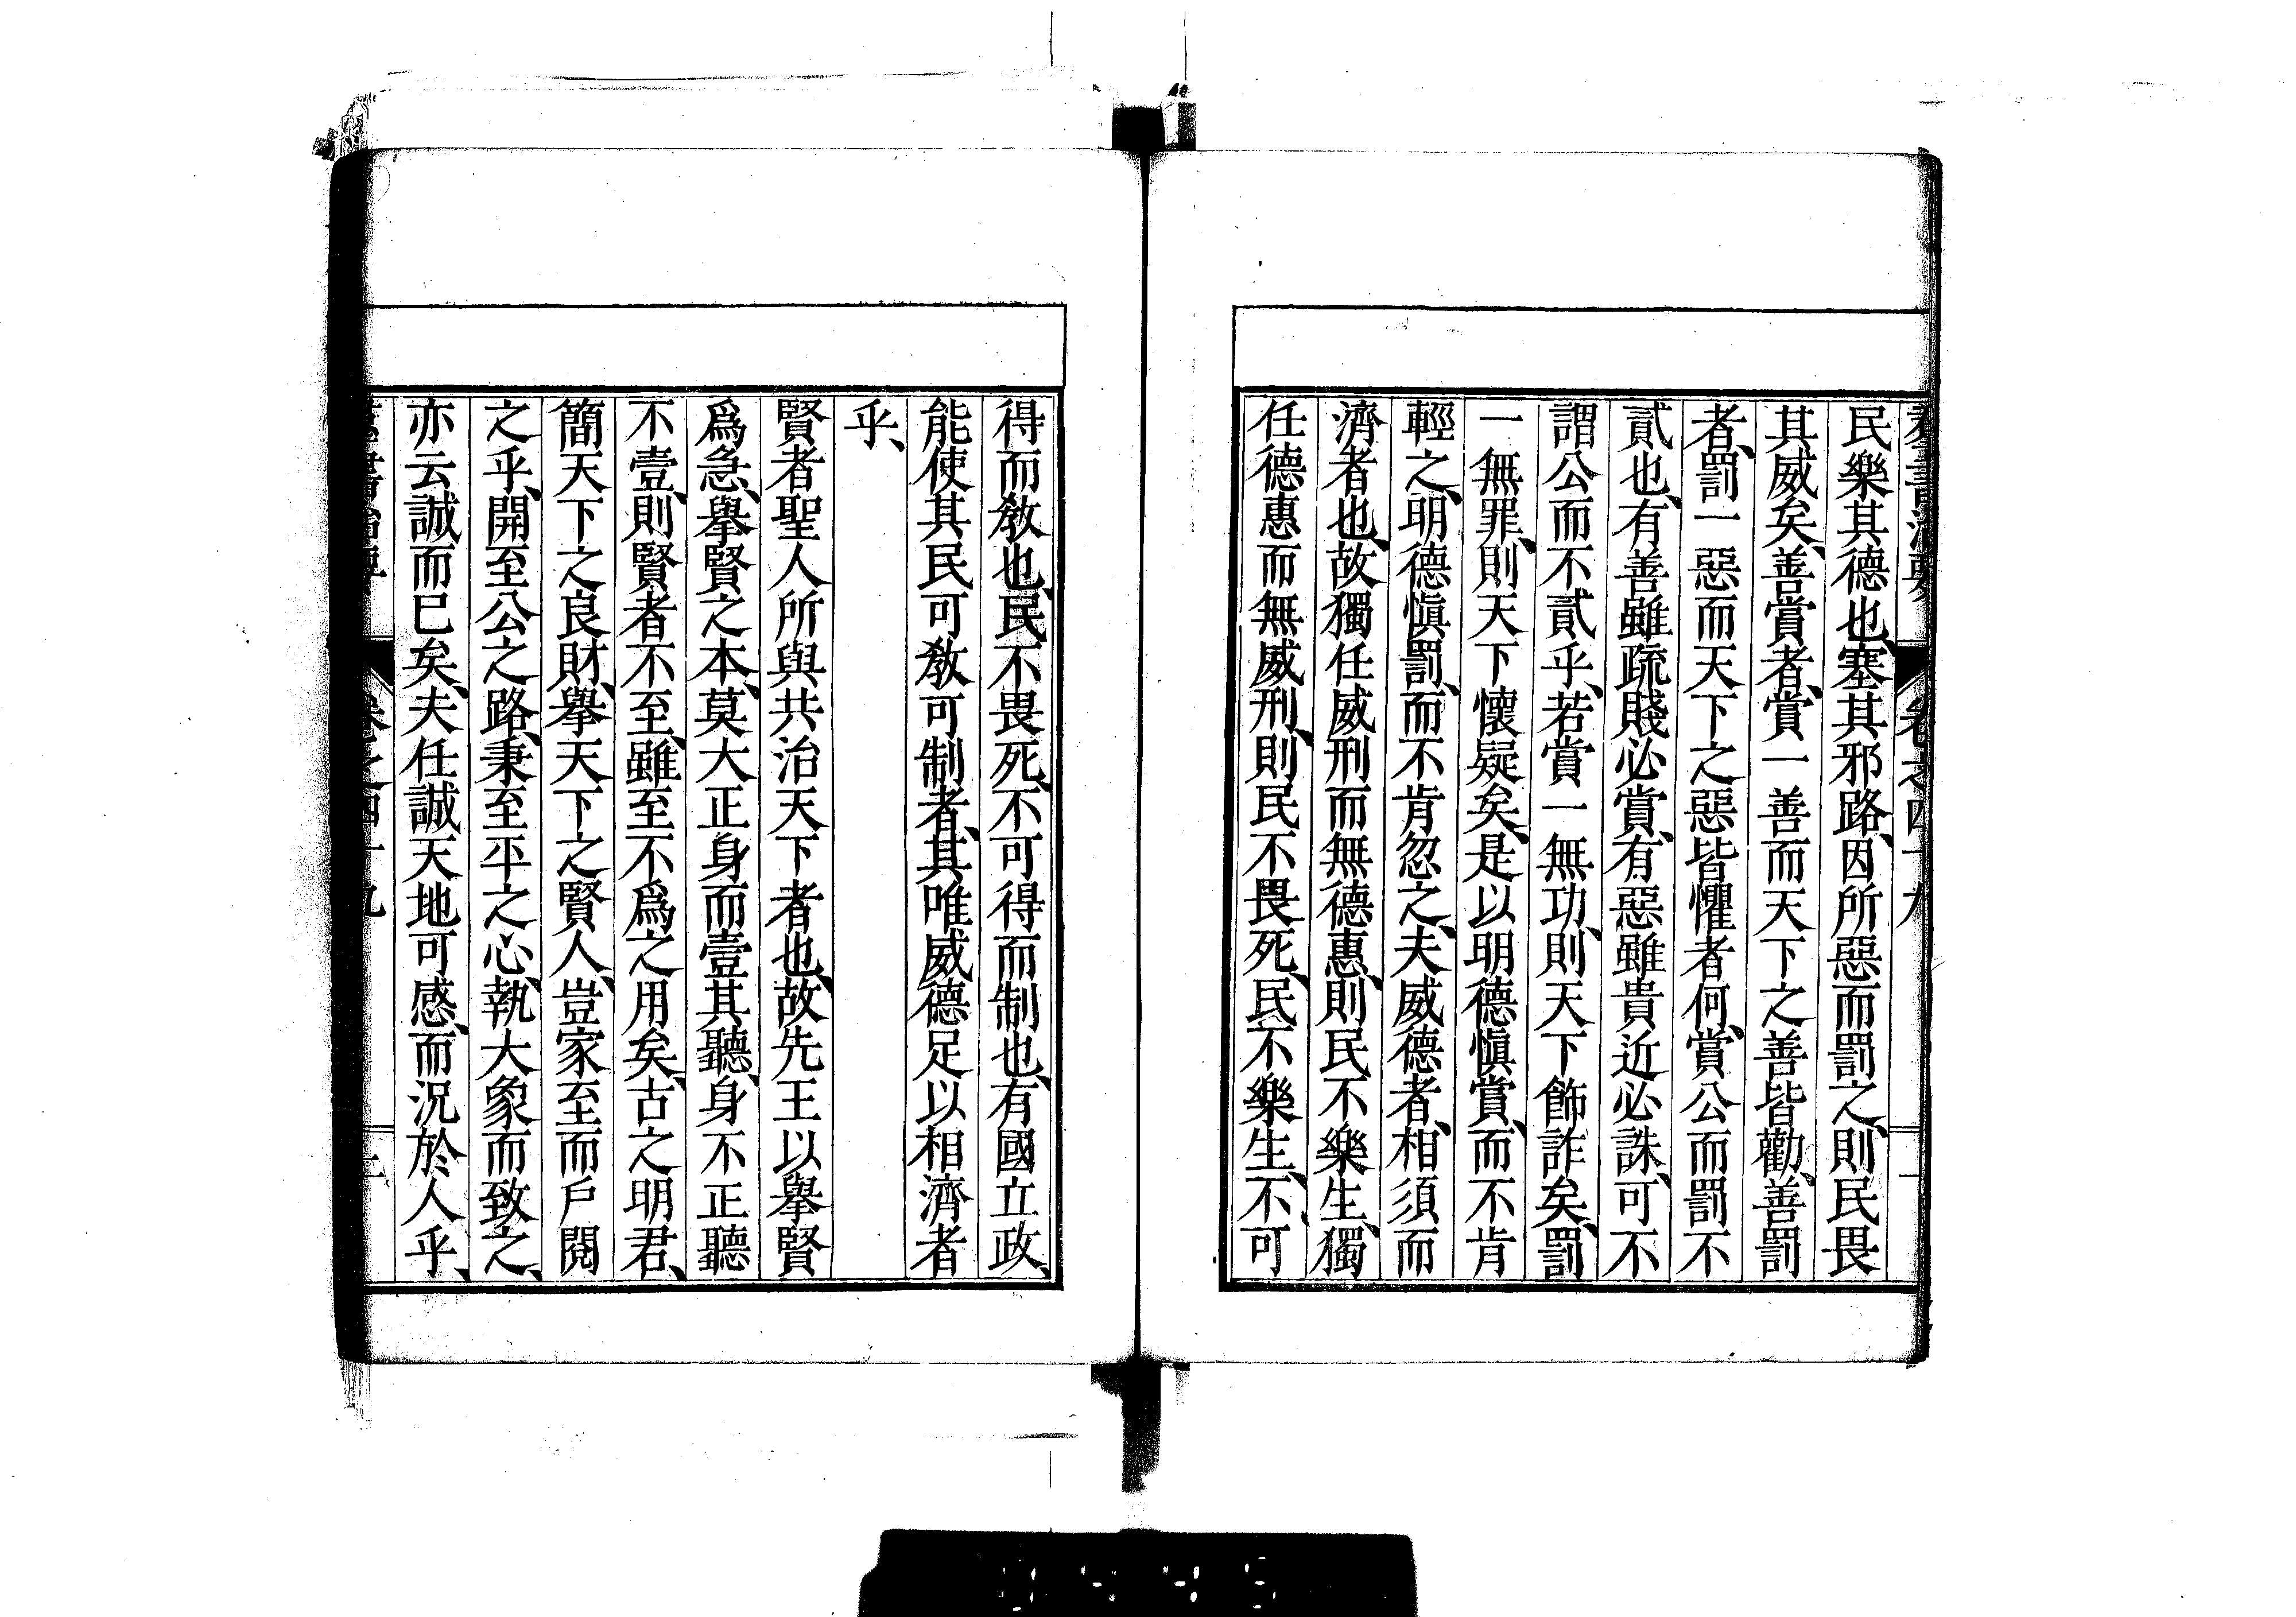 羣書治要 卷之四十九
民樂其德也、塞其邪路、因所惡而罰之、則民畏
其威矣、善賞者、賞一善而天下之善皆勸、善罰
者、罰一惡而天下之惡皆懼者何、賞公而罰不
貳也、有善雖疏賤必賞、有惡雖貴近必誅、可不
謂公而不貳乎、若賞一無功、則天下飾詐矣、罰
一無罪、則天下懷疑矣、是以明德愼賞、而不肯
輕之、明德愼罰、而不肯忽之、夫威德者、相須而
濟者也、故獨任威刑而無德惠、則民不樂生、獨
任德惠而無威刑、則民不畏死、民不樂生、不可
得而敎也、民不畏死、不可得而制也、有國立政、
能使其民可敎可制者、其唯威德足以相濟者
乎、
賢者聖人所與共治天下者也、故先王以擧賢
爲急、擧賢之本、莫大正身而壹其聽、身不正聽
不壹、則賢者不至、雖至不爲之用矣、古之明君、
簡天下之良財、擧天下之賢人、豈家至而戶閱
之乎、開至公之路、秉至平之心、執大象而致之、
亦云誠而已矣、夫任誠天地可感、而況於人乎、
羣書治要 卷之四十九 三